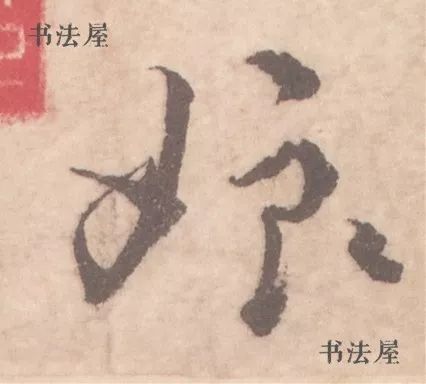 书法屋
娘
书法屋